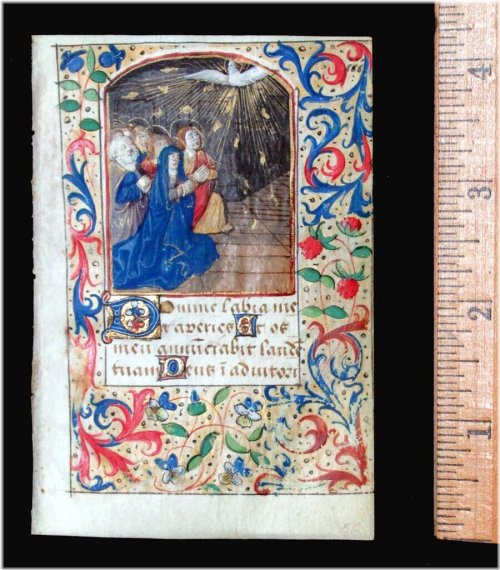 Domine labia me
a aperies Et os
meū annūciabit laudē
tuam Deus ī adiutori
4
3
2
1